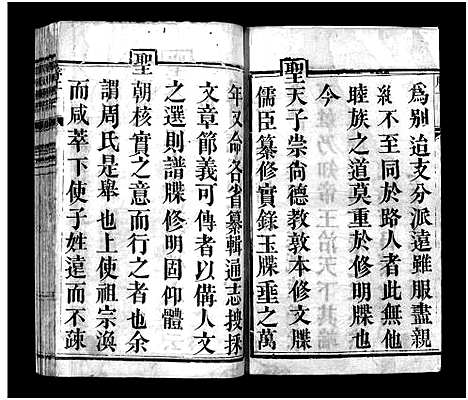 為別迨支分派遠雖服盡親
絕不至同於路人者此無他
睦族之道莫重於修明牒也
今
聖天子崇尚德教敦本修文牒
儒臣纂修實錄玉牒垂之萬
年又命各省纂輯通志搜採
文章節義可傳者以備人文
之選則譜牒修明固仰體
聖朝核實之意而行之者也余
謂周氏是舉也上使祖宗渙
而咸萃下使子姓遠而不疎